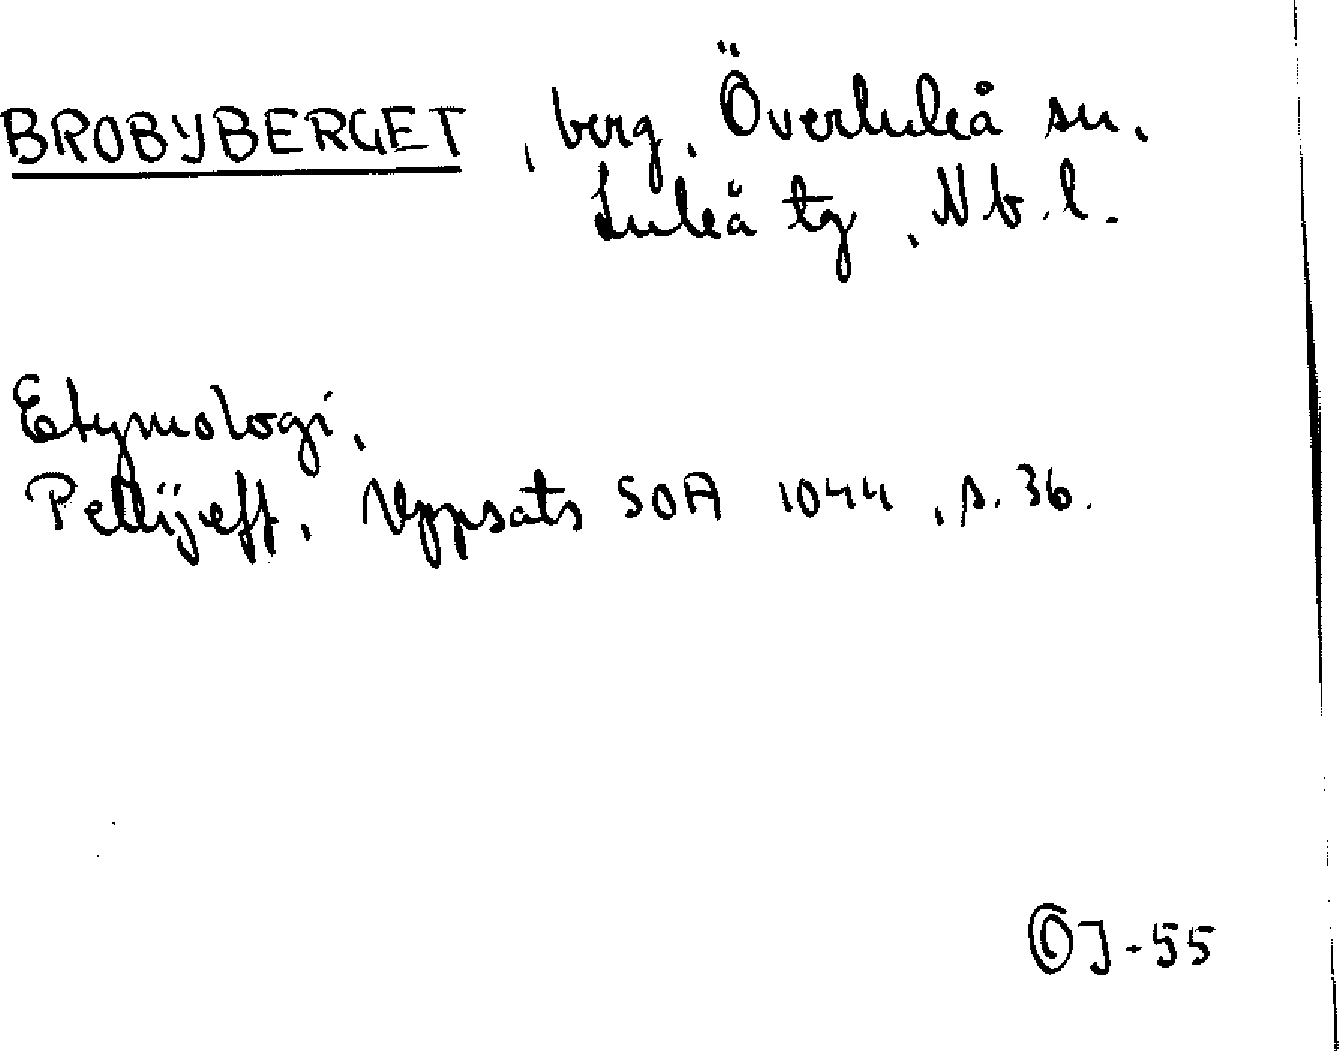 BROBYBERGET, berg, Överluleå sn,
Luleå tg, Nb.l.
Etymologi,
Pellijeff, Uppsats SOA 1044, s. 36.
OJ-55